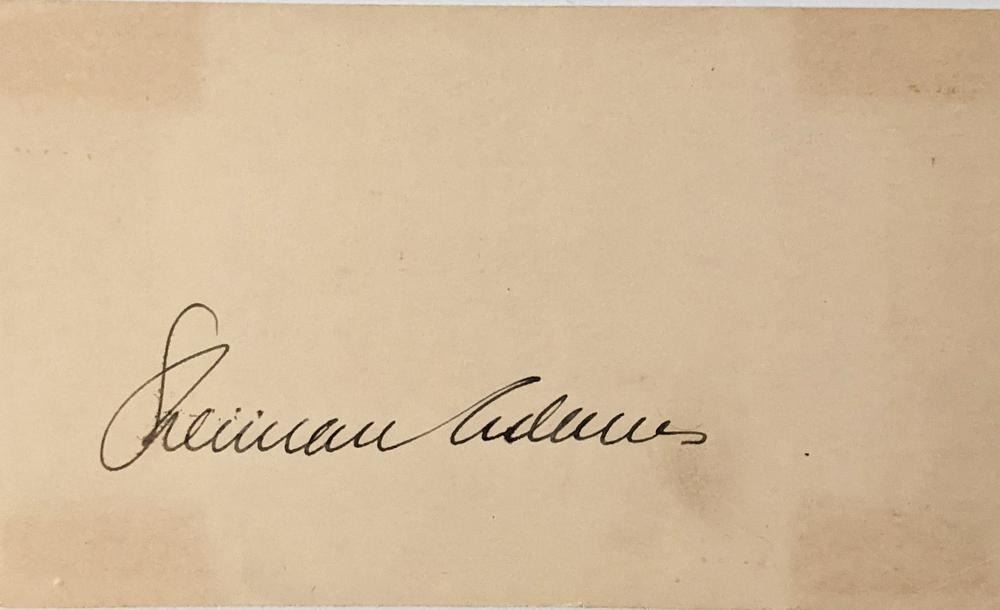 Sherman Adams